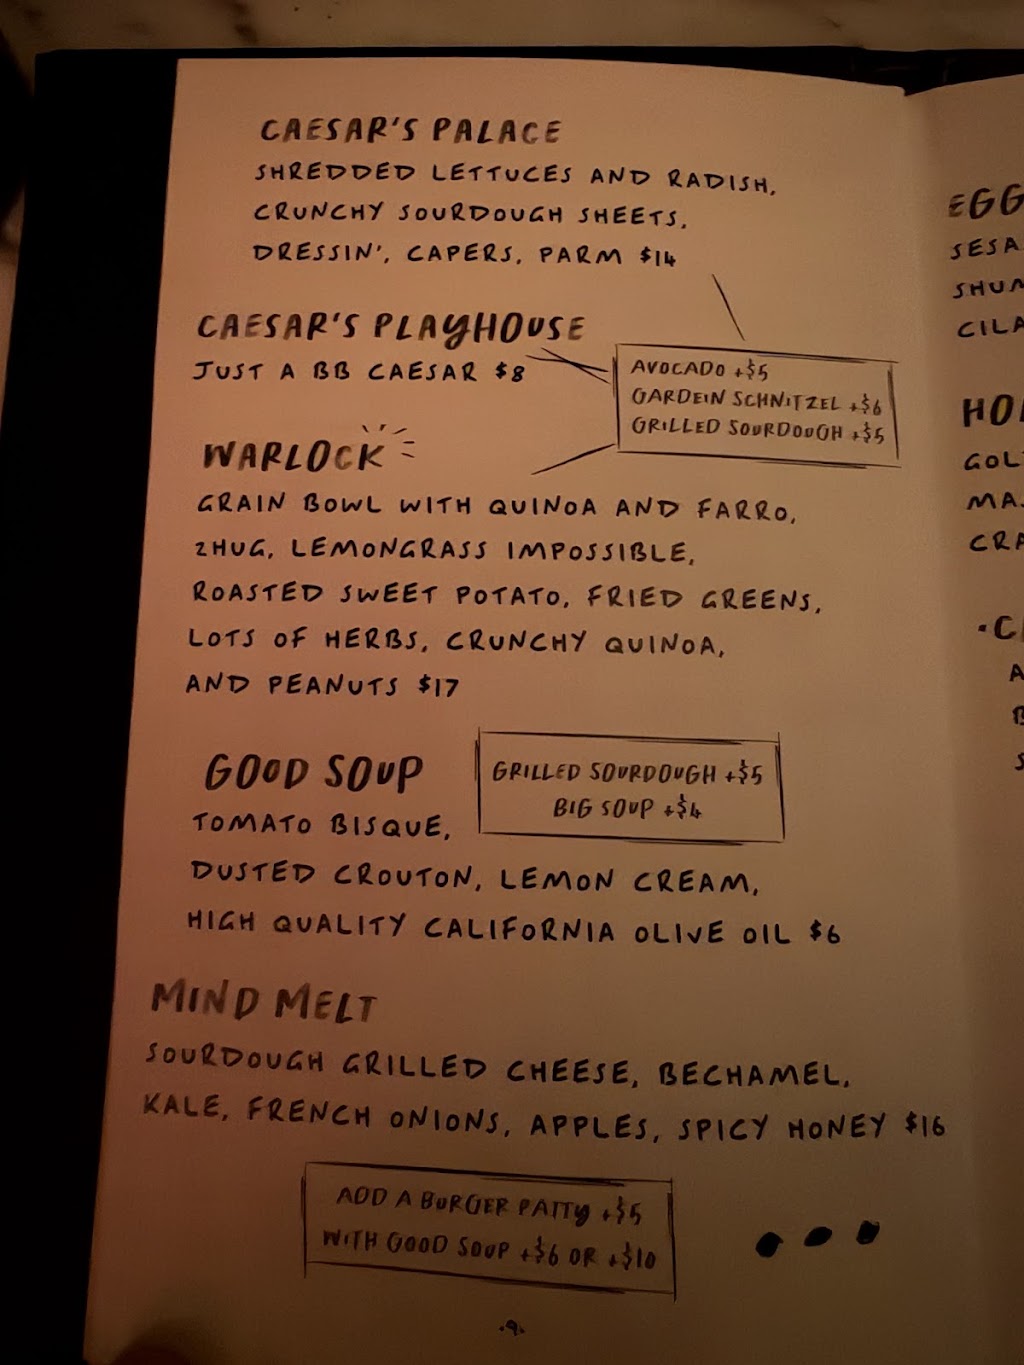 CAESAR'S PALACE
SHREDDED LETTUCES AND RADISH,
CRUNCHY SOURDOUGH SHEETS,
DRESSIN', CAPERS, PARM $14
CAESAR'S PLAYHOUSE
JUST A BB CAESAR $8
AVOCADO +$5
GARDEIN SCHNITZEL +$6
GRILLED SOURDOUGH +$5
WARLOCK
GRAIN BOWL WITH QUINOA AND FARRO,
ZHUG, LEMONGRASS IMPOSSIBLE,
ROASTED SWEET POTATO, FRIED GREENS,
LOTS OF HERBS, CRUNCHY QUINOA,
AND PEANUTS $17
GOOD SOUP
GRILLED SOURDOUGH +$5
BIG SOUP +$4
TOMATO BISQUE,
DUSTED CROUTON, LEMON CREAM,
HIGH QUALITY CALIFORNIA OLIVE OIL $6
MIND MELT
SOURDOUGH GRILLED CHEESE, BECHAMEL,
KALE, FRENCH ONIONS, APPLES, SPICY HONEY $16
ADD A BURGER PATTY +$5
WITH GOOD SOUP +$6 OR +$10
·9·
EGG
SESA
SHUM
CILA
GOL
MA
CRA